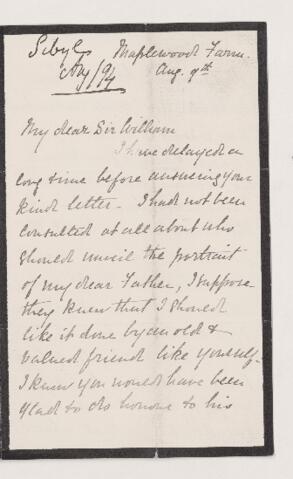 Sibyl Maplewood Farm.
Aug/94 Aug. 9th
My dear Sir William
I have delayed a
long time before answering your
kind letter. I had not been
consulted at all about who
should unveil the portrait
of my dear Father, I suppose
they knew that I should
like it done by an old &
valued friend like yourself.
I knew you would have been
glad to do honour to his